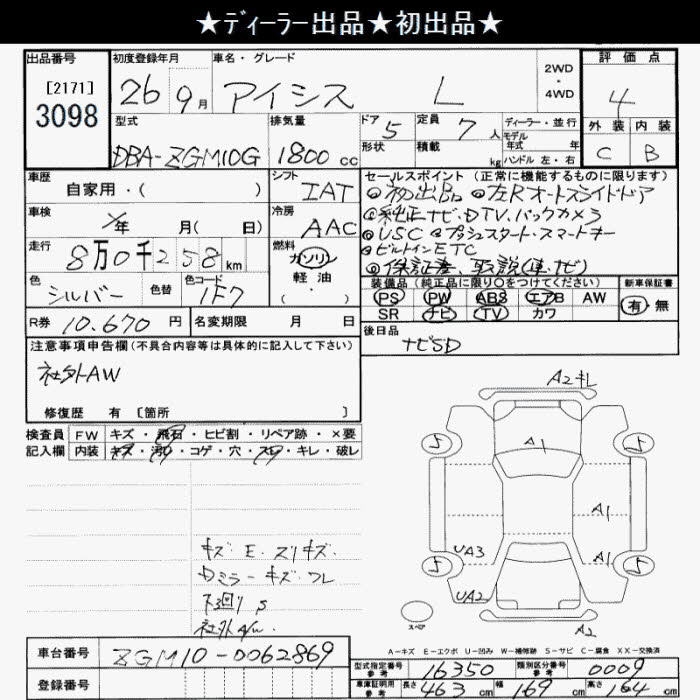 ★ディーラー出品★初出品★
出品番号 初度登録年月 車名・グレード 2WD・4WD 評価点
[2171]
3098
26 9月 アイシス L 4
型式 排気量 ドア 定員 ディーラー・並行 外装 内装
DBA-ZGM10G 1800cc 5 7人 モデル年式 年 C B
形状 積載 kg ハンドル 左・右
車歴 シフト セールスポイント(正常に機能するものに限ります)
自家用・( ) IAT
◎初出品 ◎左Rオートスライドドア
車検 年 月( 日) 冷房 AAC
◎純正ナビ・DTV.バックカメラ
◎USC ◎プッシュスタート・スマートキー
走行 8万0千258km 燃料 ガソリン
◎ビルトインETC
軽油
・( )
◎保証書、取説(車・ナビ)
色 シルバー 色替 色コード 1F7
装備品(純正品に限り○をつけてください) 新車保証書
PS PW ABS エアB AW 有・無
SR ナビ TV カワ
R券 10.670円 名変期限 月 日
後日品
ナビSD
注意事項申告欄(不具合内容等は具体的に記入して下さい)
社外AW
修復歴 有 [箇所 ]
検査員 FW キズ・飛石・ヒビ割・リペア跡・×要
記入欄 内装 キズ・汚れ・コゲ・穴・スレ・キレ・破レ
A2キレ
5 A1 5
A1
UA3 A1
5 5
UA2
スペア A2
キズ・E・スリキズ.
Dミラーキズ・フレ
下廻りS
社外A/w.
A-キズ E-エクボ U-凹み W-補修跡 S-サビ C-腐食 XX-交換済
車台番号 ZGM10-0062869
型式指定番号 参考 16350 類別区分番号 参考 0009
登録番号
車庫証明用 参考 長さ 463cm 幅 169cm 高さ 164cm